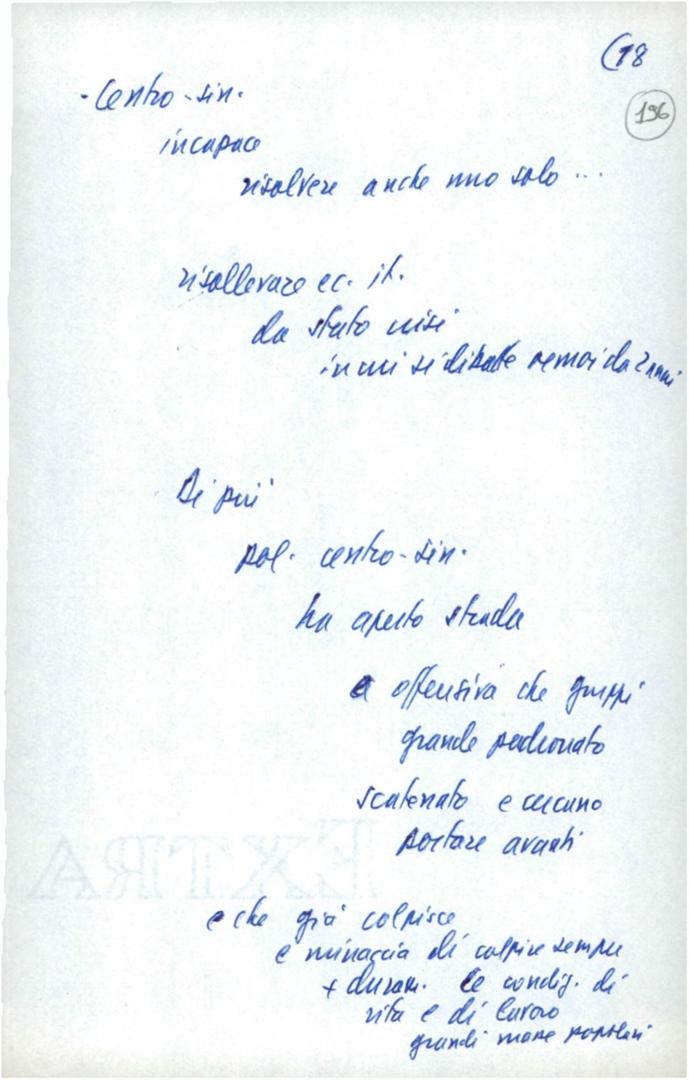 (18
196
- Centro-sin.
incapace
risolvere anche uno solo ...
risollevare ec. it.
da stato crisi
in cui si dibatte ormai da 2 anni
Di più
pol. centro-sin.
ha aperto strada
a offensiva che gruppi
grande padronato
scatenato e cercano
portare avanti
e che già colpisce
e minaccia di colpire sempre
+ duram. le condiz. di
vita e di lavoro
grandi masse popolari
EXTRA